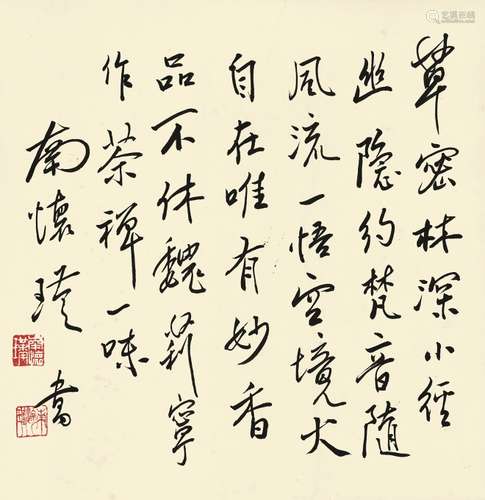 草密林深小径
幽隐约梵音随
风流一悟空境大
自在唯有妙香
品不休魏莉寧
作茶禅一味
南懷瑾
書